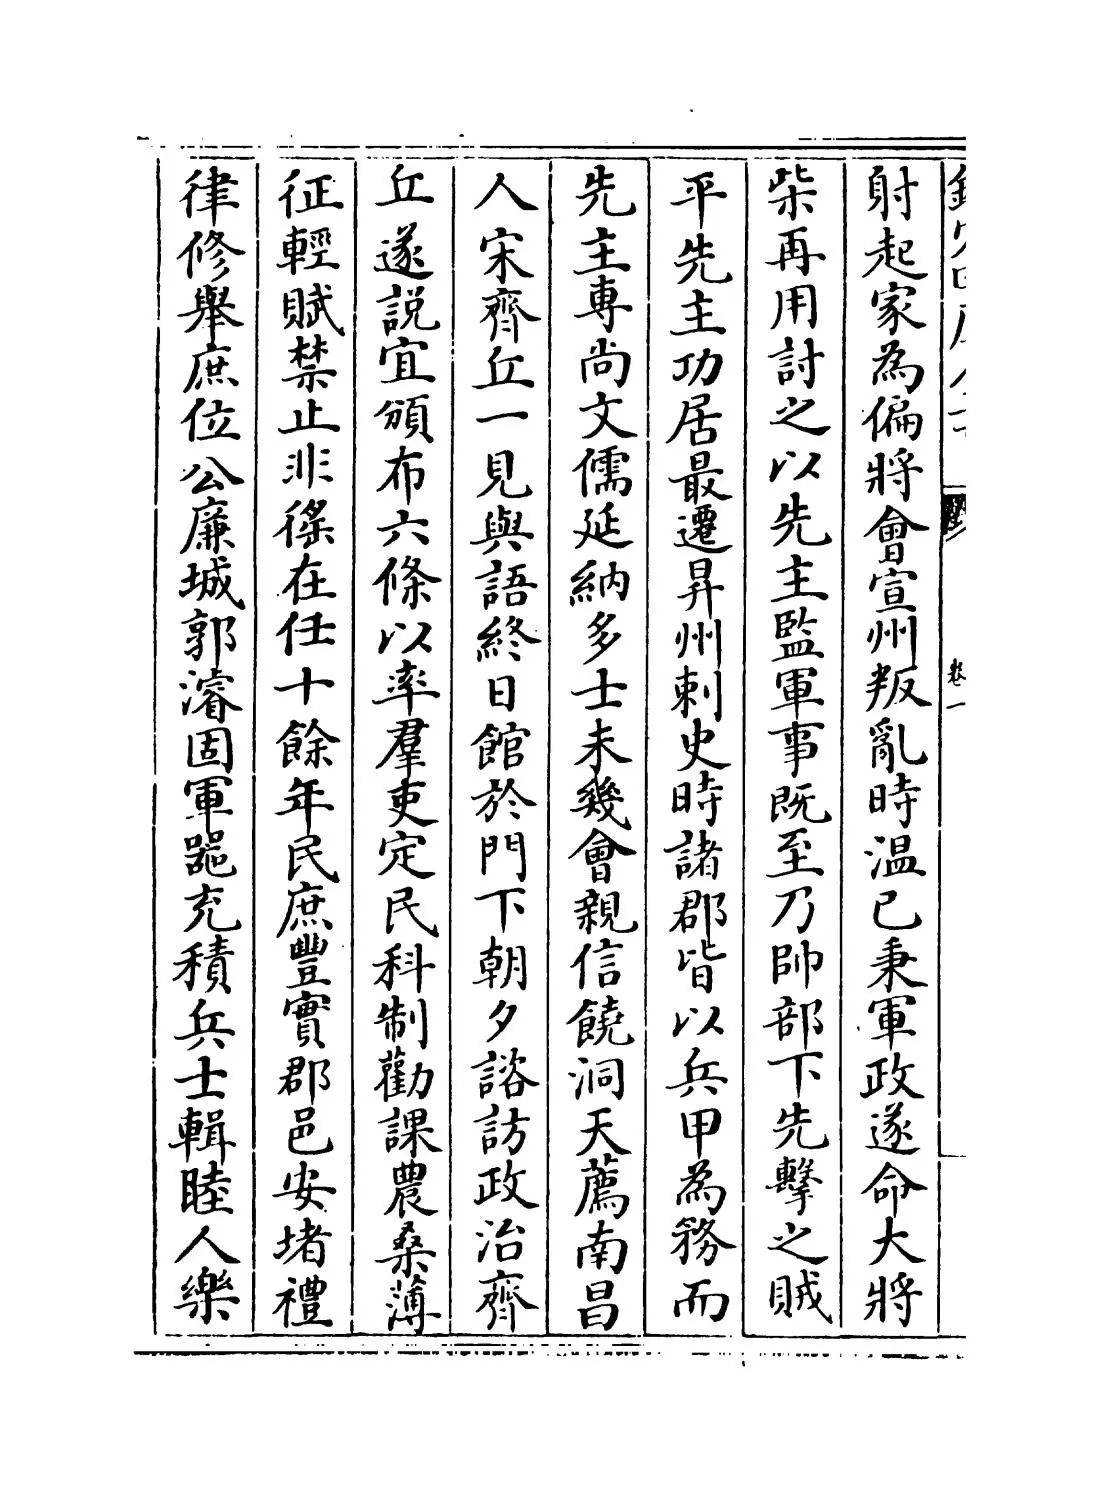 欽定四庫全書
卷一
射起家為偏將會宣州叛亂時温已秉軍政遂命大將
柴再用討之以先主監軍事既至乃帥部下先擊之賊
平先主功居最遷昇州刺史時諸郡皆以兵甲為務而
先主專尚文儒延納多士未幾會親信饒洞天薦南昌
人宋齊丘一見與語終日館於門下朝夕諮訪政治齊
丘遂説宜頒布六條以率羣吏定民科制勸課農桑薄
征輕賦禁止非徭在任十餘年民庶豐實郡邑安堵禮
律修舉庶位公廉城郭濬固軍器充積兵士輯睦人樂